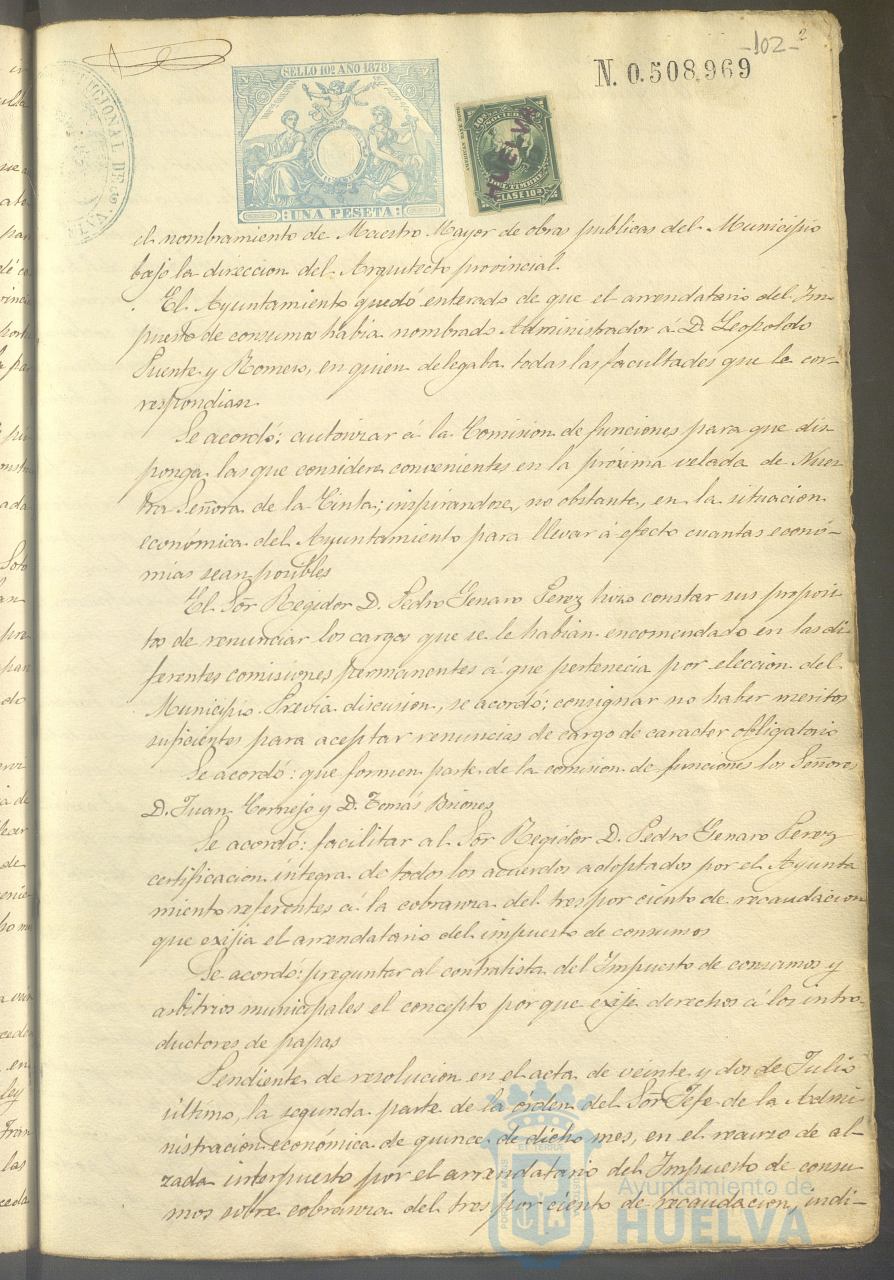 -102-
N. 0.508,969
SELLO 10º AÑO 1878
UNA PESETA
AMERICAN BANK NOTE
HUELVA
DEL TIMBRE
CLASE 10ª
el nombramiento de Maestro Mayor de obras publicas del Municipio
bajo la direccion del Arquitecto provincial.
El Ayuntamiento quedó enterado de que el arrendatario del Im-
puesto de consumos habia nombrado Administrador á D. Leopoldo
Puente y Romero, en quien delegaba todas las facultades que le cor-
respondian.
Se acordó: autorizar á la Comision de funciones para que dis-
ponga las que considere convenientes en la próxima velada de Nues-
tra Señora de la Cinta; inspirandose, no obstante, en la situacion
económica del Ayuntamiento para llevar á efecto cuantas econó-
mias sean posibles
El Sor Regidor D. Pedro Genaro Perez hizo constar sus proposi-
tos de renunciar los cargos que se le habian encomendado en las di-
ferentes comisiones permanentes á que pertenecia por eleccion del
Municipio. Previa discusion, se acordó: consignar no haber meritos
suficientes para aceptar renuncias de cargo de caracter obligatorio
Se acordó: que formen parte de la comision de funciones los Señores
D. Juan Cornejo y D. Tomás Briones
Se acordó: facilitar al Sor Regidor D. Pedro Genaro Perez
certificacion íntegra de todos los acuerdos adoptados por el Ayunta
miento referentes á la cobranza del tres por ciento de recaudacion
que exijia el arrendatario del impuesto de consumos
Se acordó: preguntar al contratista del Impuesto de consumos y
arbitrios municipales el concepto por que exije derechos á los intro-
ductores de papas
Pendiente de resolucion en el acta de veinte y dos de Julio
último, la segunda parte de la órden del Sor Jefe de la Admi-
nistracion económica de quince de dicho mes, en el recurso de al-
zada interpuesto por el arrendatario del Impuesto de consu-
mos sobre cobranza del tres por ciento de recaudacion, indi-
Ayuntamiento de
HUELVA